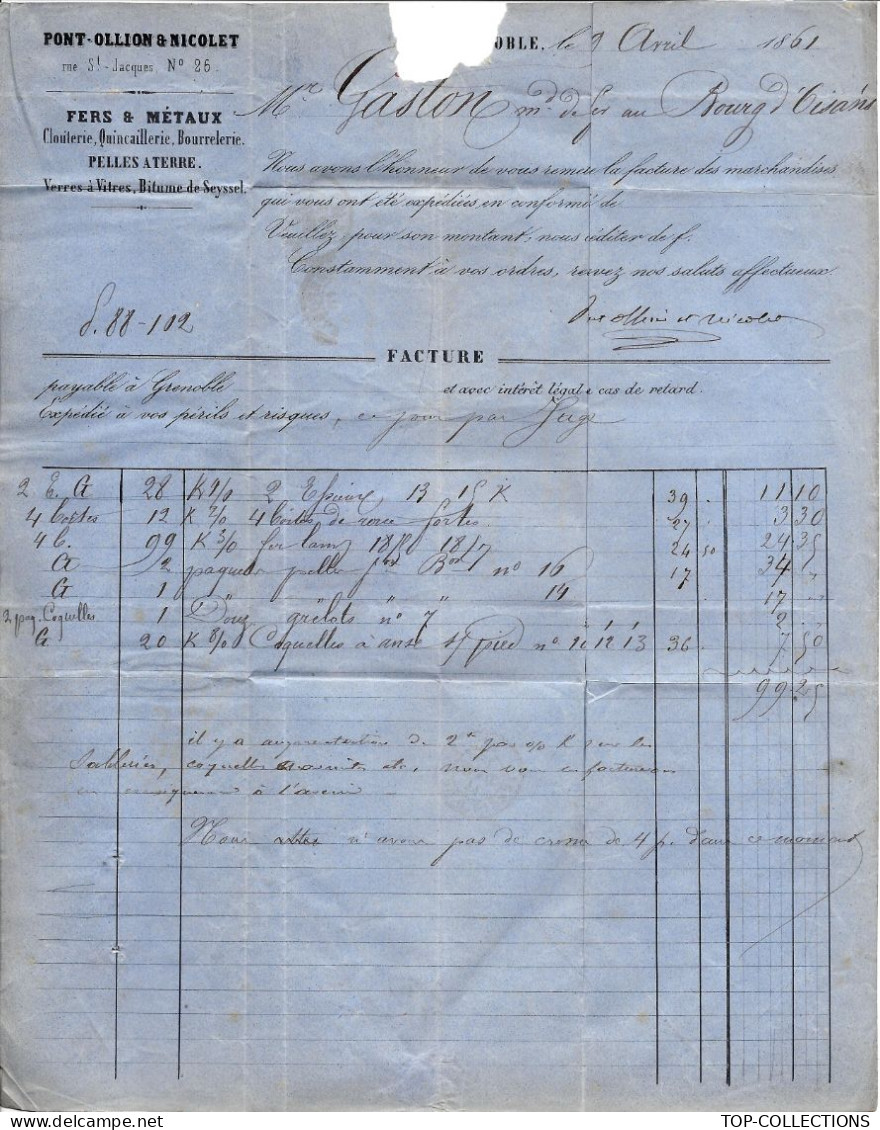 PONT-OLLION & NICOLET
rue St-Jacques No 26
OBLE, le 9 Avril 1861
Mr Gaston md de fer au Bourg d'Oisans
FERS & MÉTAUX
Clouterie, Quincaillerie, Bourrelerie.
PELLES A TERRE.
Verres à Vitres, Bitume de Seyssel.
Nous avons l'honneur de vous remettre la facture des marchandises
qui vous ont été expédiées, en conformé de
Veuillez, pour son montant, nous créditer de f.
Constamment à vos ordres, recevez nos saluts affectueux.
f. 88-102
Pont Ollion et Nicolet
FACTURE
payable à Grenoble et avec intérêt légal e cas de retard.
Expédié à vos périls et risques, ce jour par
2 G 28 K 2 13 15 K 39 . 11 10
4 boites 12 K 4 boites de roue fortes 27 . 3 30
4 b. 99 K 24 50 24 35
G 2 paquets pelles no 16 17 34 "
G 1 " " " 14 17 "
2 paq. Coquelles 1 Douz grelots no 7 2 "
G 20 K Coquelles à anse s/ pied no 11 12 13 36 7 50
99 25
il y a augmentation de 2 f par % K sur les
coquelles etc, nous vous en facturerons
à l'avenir
Nous n'avons pas de de 4 p. dans ce moment
TOP-COLLECTIONS